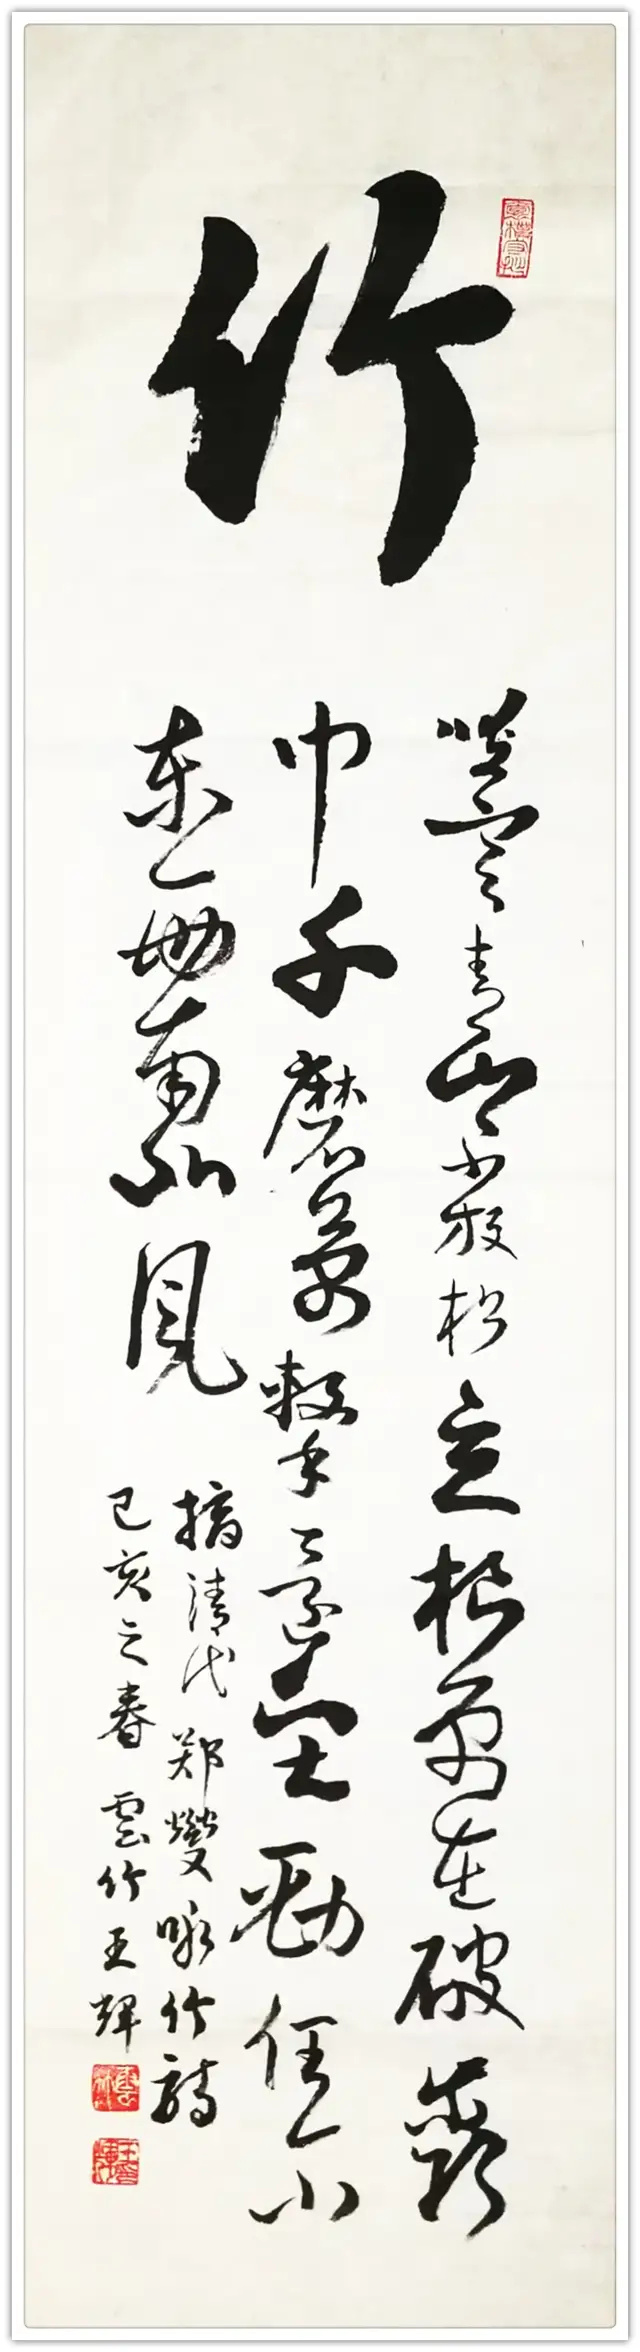 竹
咬定青山不放松立根原在破岩
中千磨萬擊还堅勁任尔
东西南北风
摘清代郑燮咏竹诗
己亥之春 雲竹王辉